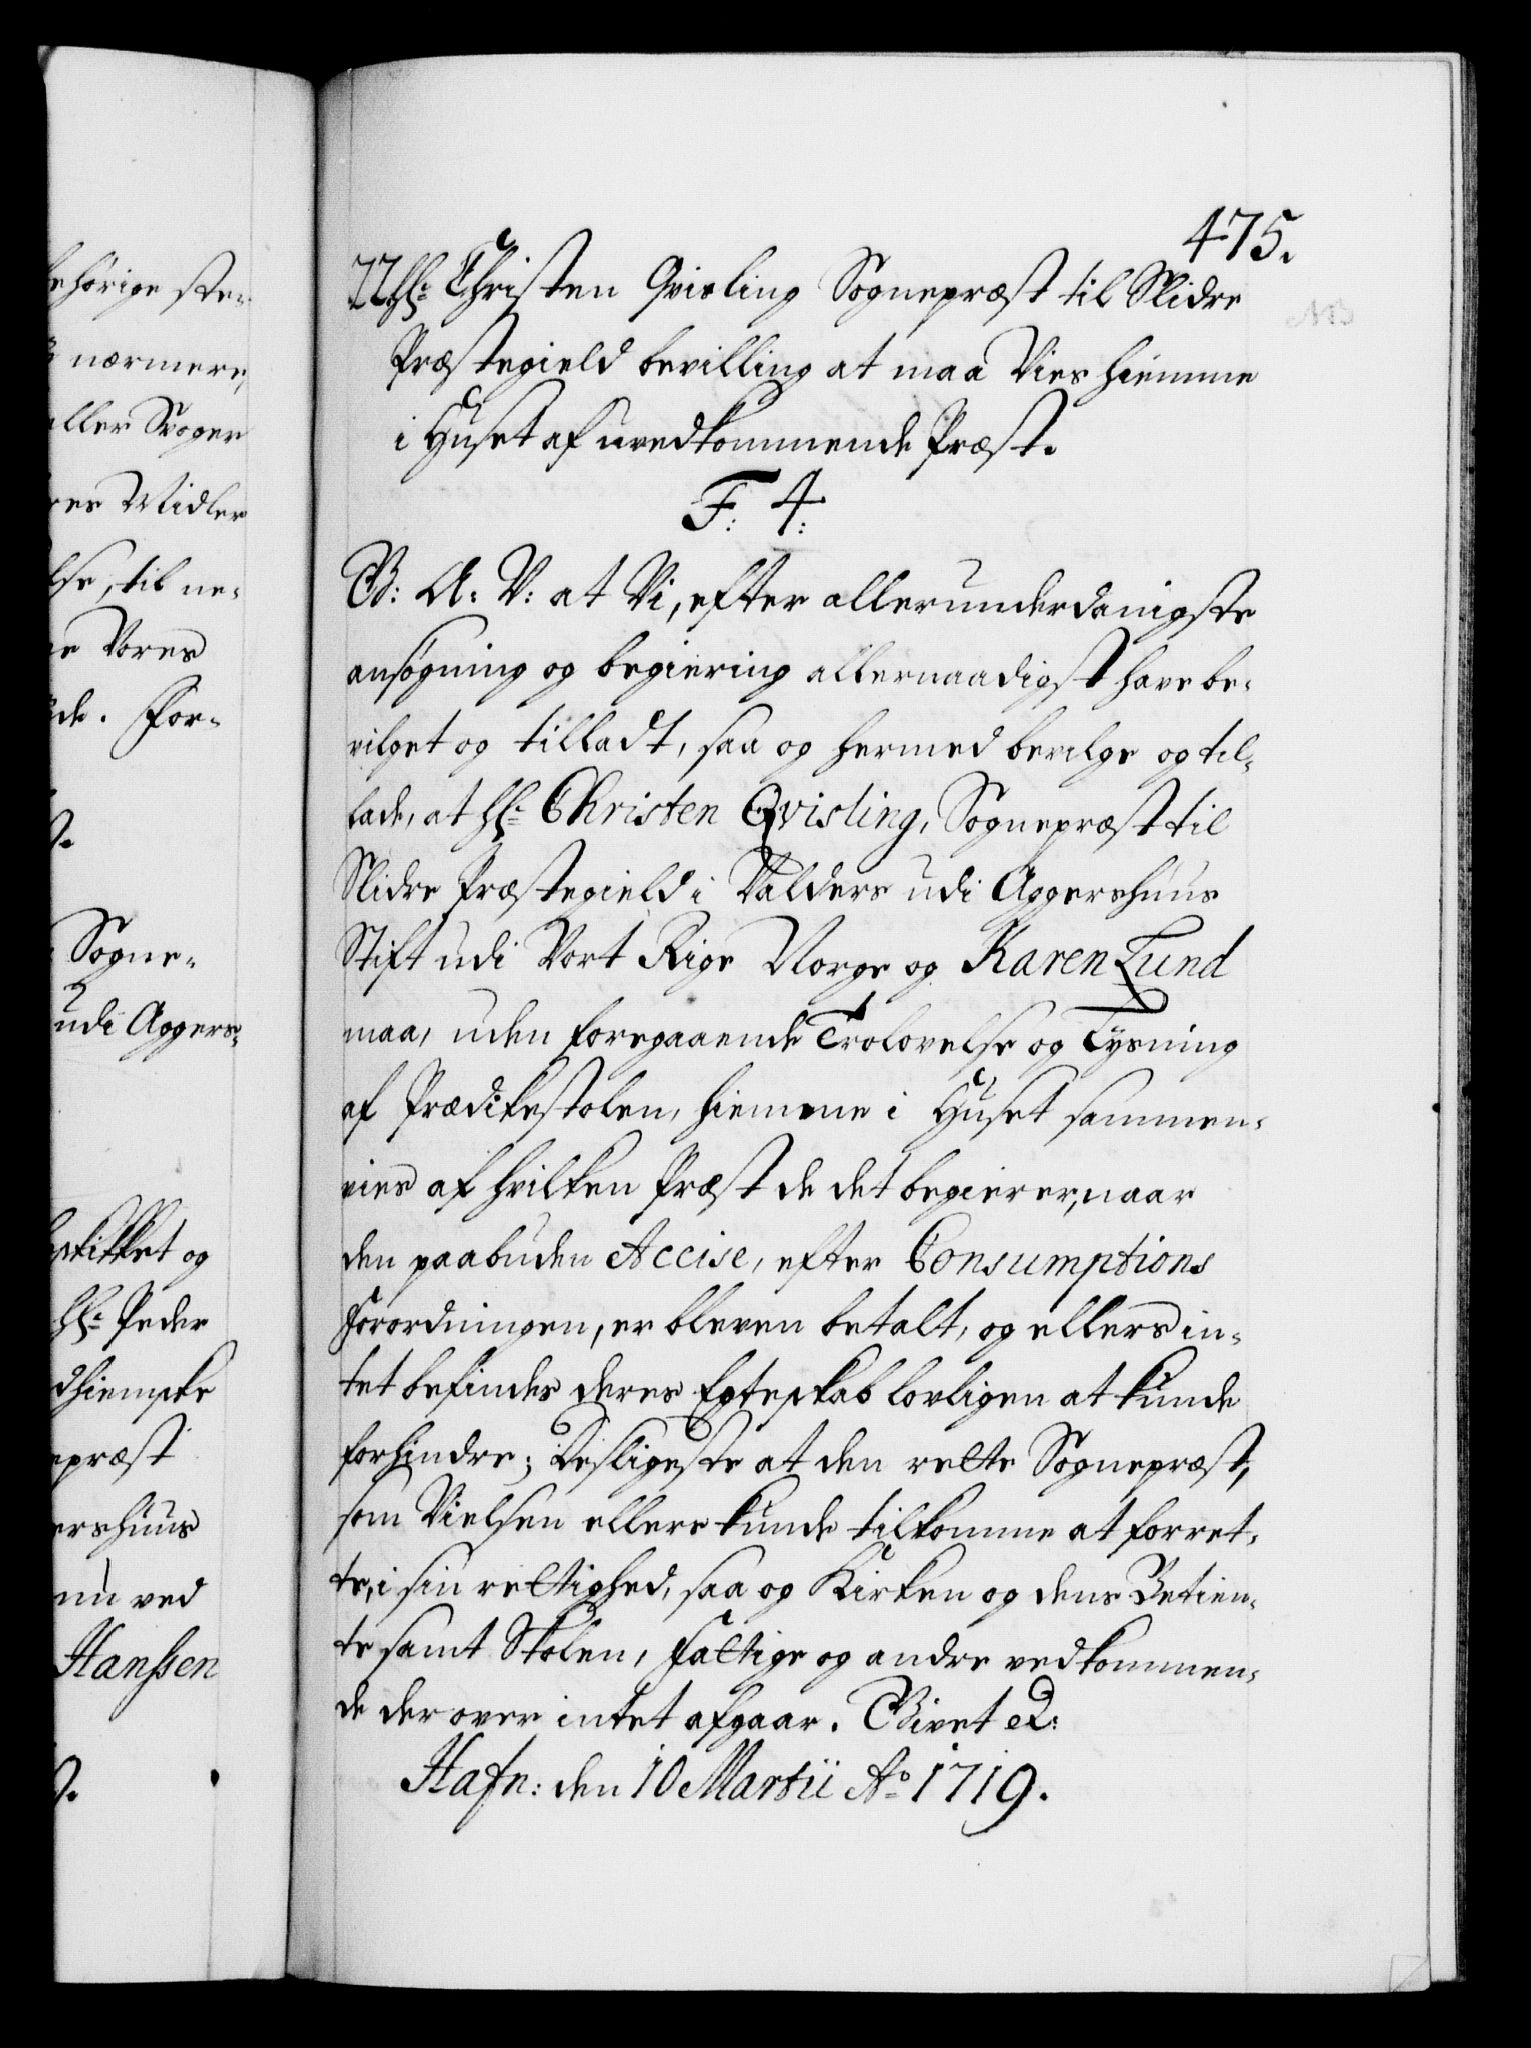 475.
77. Hr: Christen Qvisling Sognepræst til Slidre
Præstegield bevilling at maa Vies hiemme
i Huset af uvedkommende Præst.
F: 4:
G: A: V: at Vi, efter allerunderdanigste
ansøgning og begiering allernaadigst have be-
vilget og tilladt, saa og hermed bevilge og til-
lade, at Hr: Christen Qvisling, Sognepræst til
Slidre Præstegield i Valders udi Aggershuus
Stift udi Vort Rige Norge og Karen Lund
maa, uden foregaaende Trolovelse og Lysning
af Prædikestolen, hiemme i Huset sammen-
vies af hvilken Præst de det begierer, naar
den paabuden Accise, efter Consumptions
Forordningen, er bleven betalt, og ellers in-
tet befindes deres Egteskab lovligen at kunde
forhindre; Desligeste at den rette Sognepræst,
som Vielsen ellers kunde tilkomme at forret-
te, i sin rettighed, saa og Kirken og dens Betien-
te samt Skolen, Fattige og andre vedkommen-
de der over intet afgaar. Givet &:
Hafn: den 10 Martii Ao 1719.
ehørige ste-
nærmere,
aller Sager
res Midler
lse, til ne-
ge Vores
de. For-
Sogne-
udi Aggers-
skikket og
Hr: Peder
dhiemske
præst
ershuus
nu ved
Hanssen